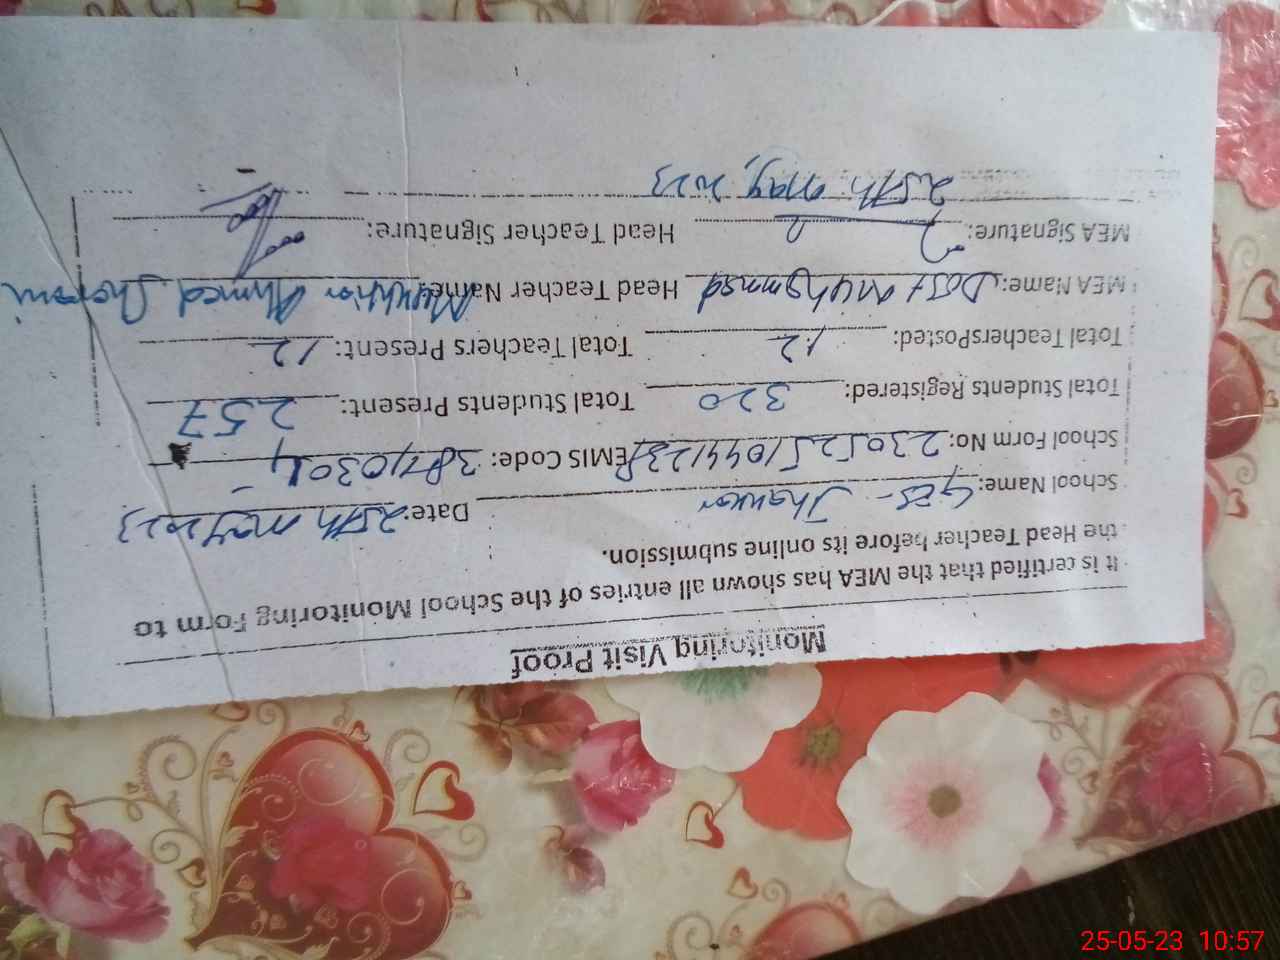 Monitoring Visit Proof
It is certified that the MEA has shown all entries of the School Monitoring Form to
the Head Teacher before its online submission.
School Name: GES - Jhawar Date: 25th may 2023
School Form No: EMIS Code:
Total Students Registered: 320 Total Students Present: 257
Total TeachersPosted: 12 Total Teachers Present: 12
MEA Name: Dost Muhammad Head Teacher Name: Mukhtiar Ahmed
MEA Signature: Head Teacher Signature:
25th may, 2023
25-05-23 10:57